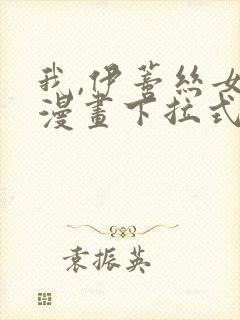 我,伊蕾絲女
漫畫下拉式
袁振英